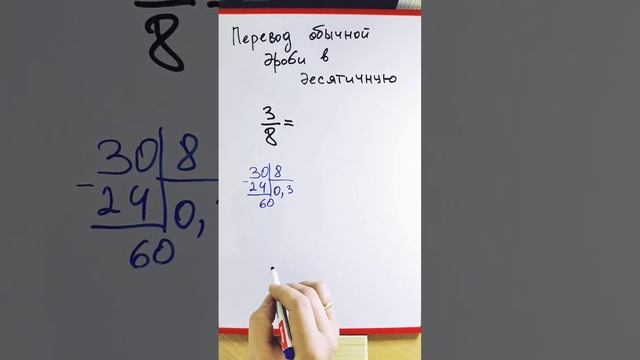 Перевод обычной
дроби в
десятичную
3
8 =
30 8
- 24 0,3
60